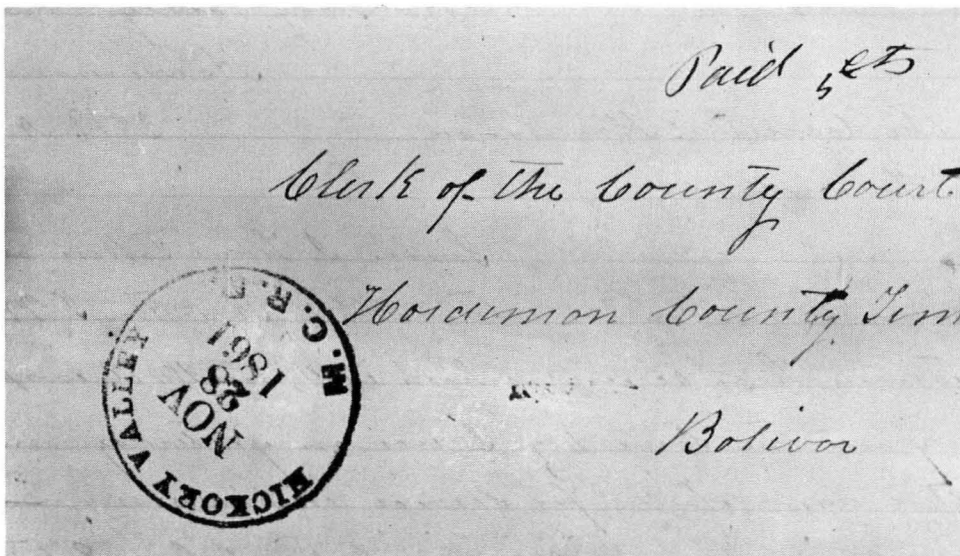 Paid 5 cts
Clerk of the County Court
Hardeman County Tenn
HICKORY VALLEY
M. C. R. R.
NOV
28
1861
Bolivar